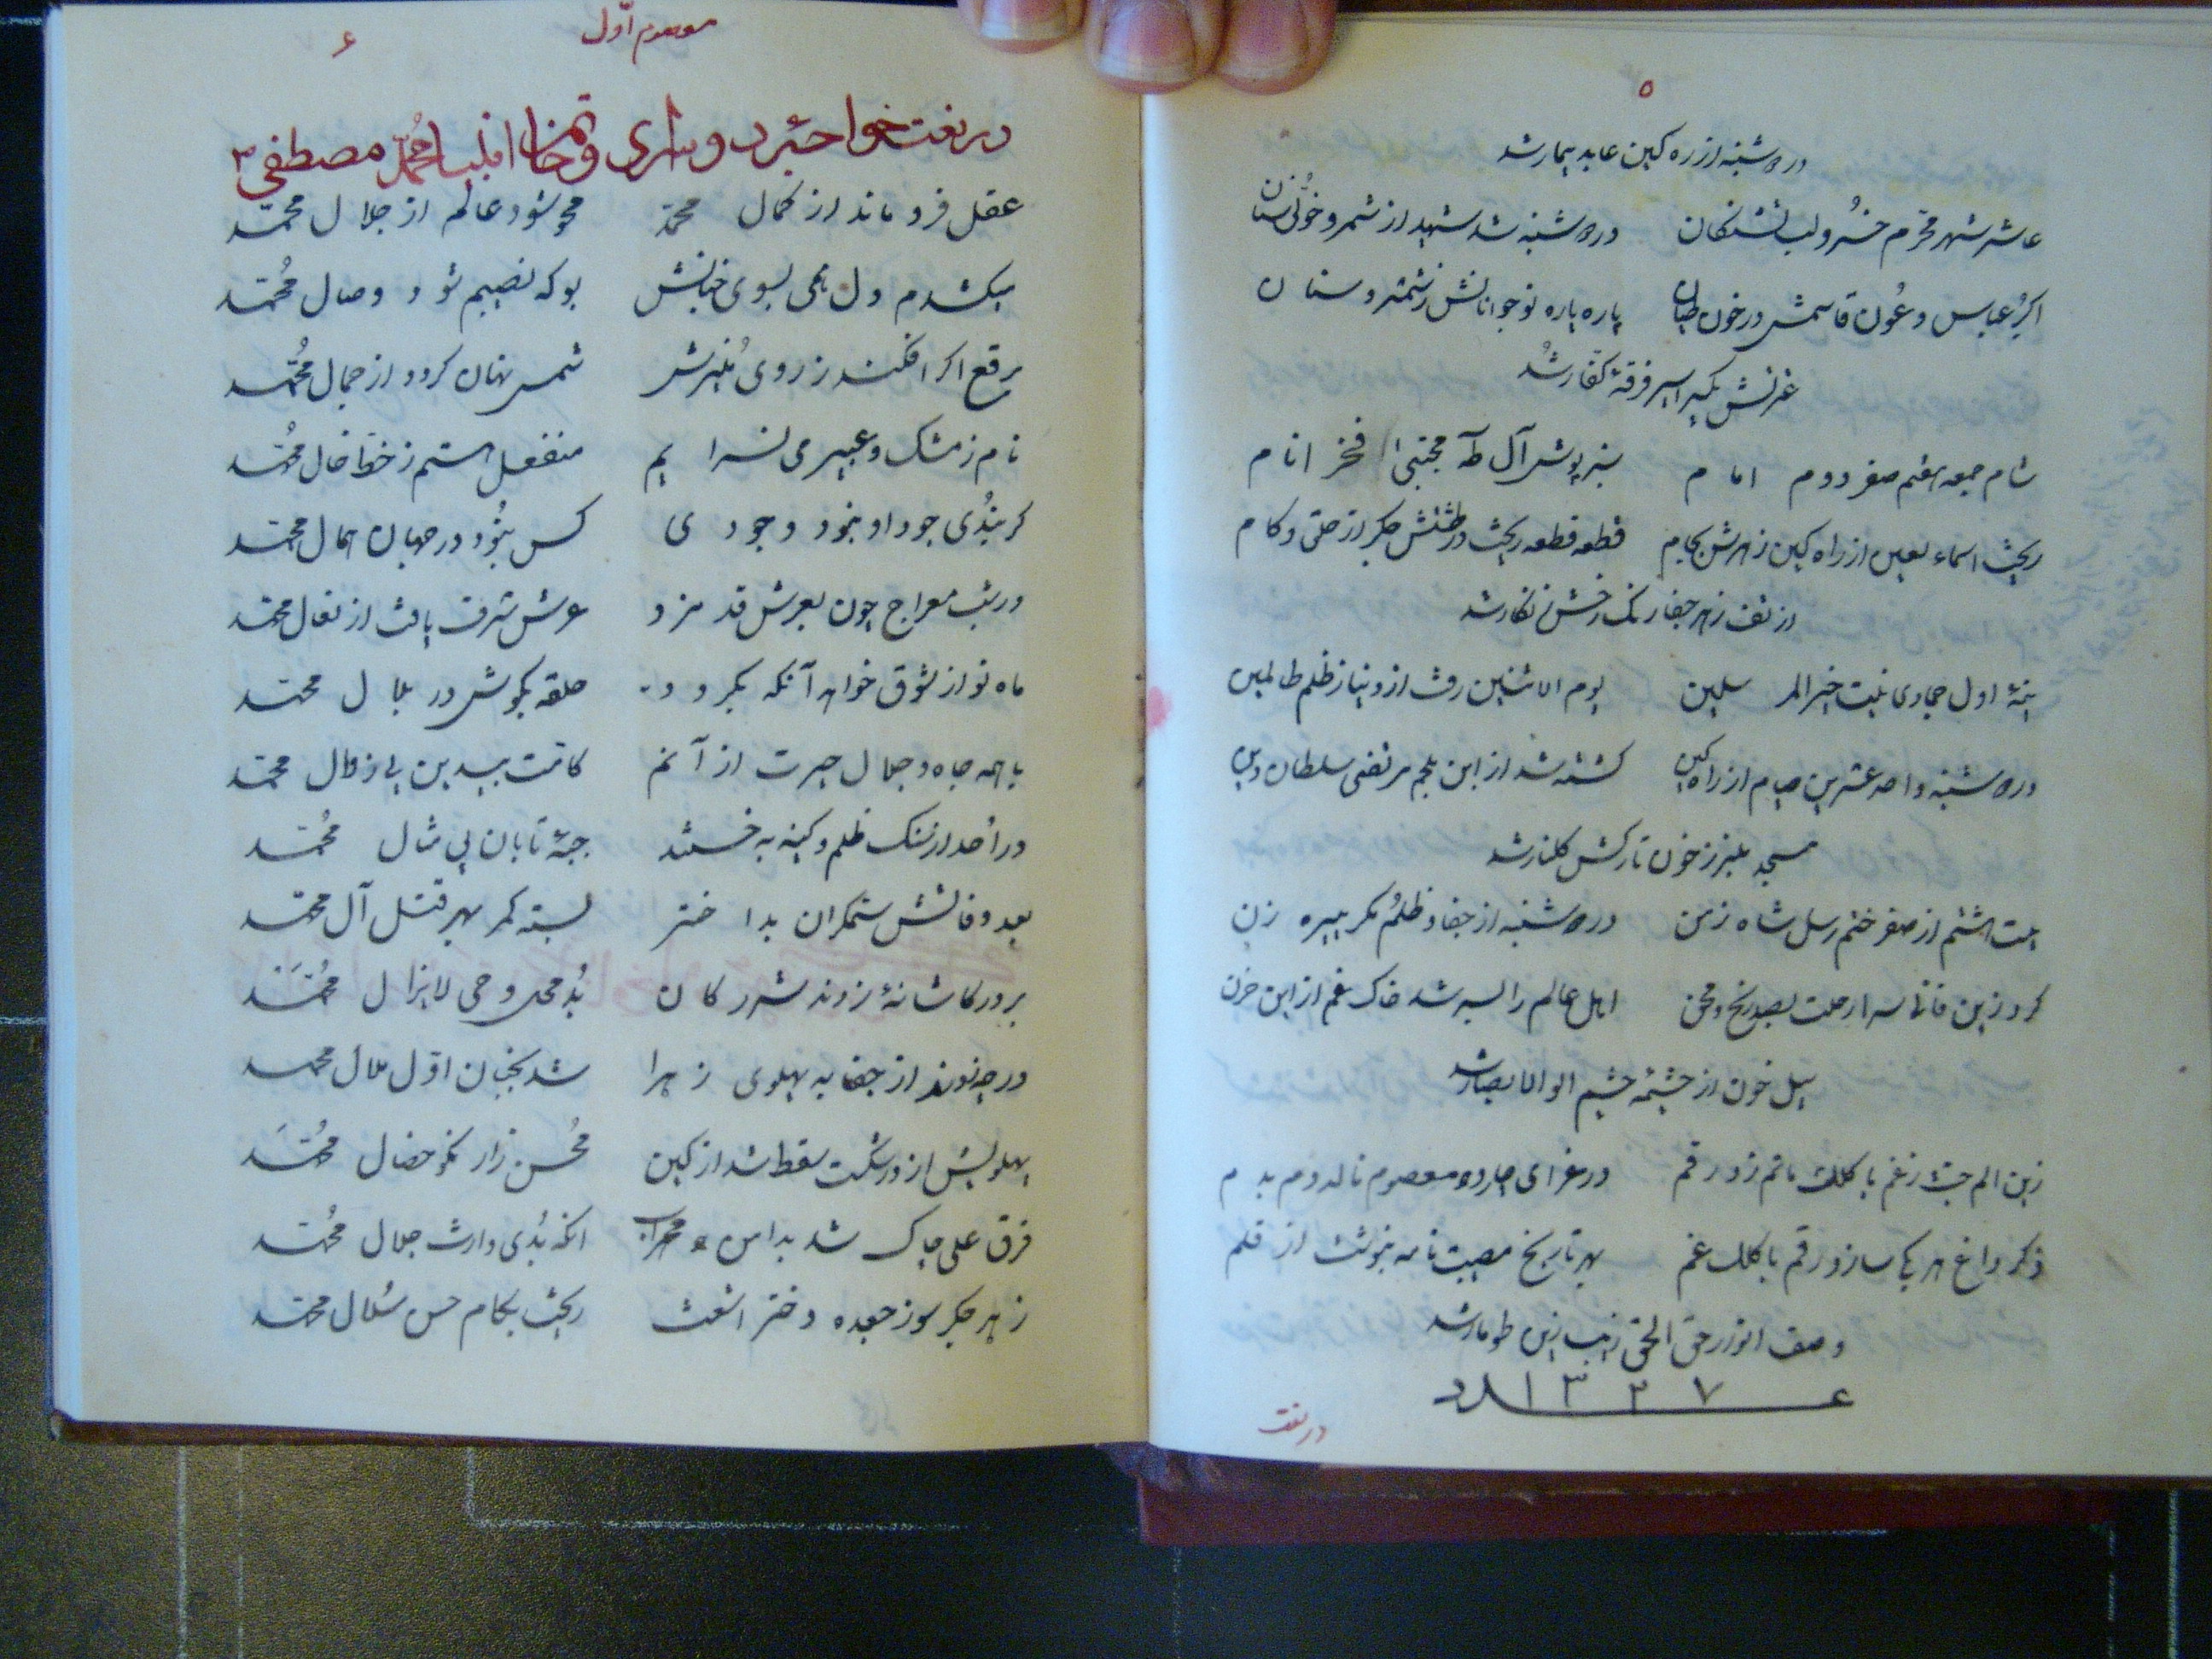 ۵
در دوشنبه از ره کین عابد بیمار شد
عاشر شهر محرم خسرو لب تشنگان در دوشنبه شد شهید از شمر و خولی سنان
اکبر عباس و عون قاسمش در خون طپان پاره پاره نوجوانانش ز شمشیر و سنان
عترتش یکسر اسیر فرقهٔ کفار شد
شام جمعه هفتم صفر دوم امام سبزپوش آل طه مجتبی فخر انام
ریخت اسماء لعین از راه کین زهرش بجام قطعه قطعه ریخت در طشتش جکر از حلق و کام
از تف زهر جفا رنک رخش زنکار شد
نیمهٔ اول جمادی بنت خیر المرسلین یوم الاثنین رفت از دنیا ز ظلم ظالمین
در دوشنبه واحد عشرین صیام از راه کین کشته شد از ابن ملجم مرتضی سلطان دین
مسجد و منبر ز خون تارکش کلنار شد
بیت هشتم از صفر ختم رسل شاه زمن در دوشنبه از جفا و ظلم مکر پیره زن
کرد زین فانی سرا رحلت بصد رنج و محن اهل عالم را بسر شد خاک غم از این حزن
سیل خون از چشمهٔ چشم الوالابصار شد
زین الم جنت ز غم با کلک ماتم زد رقم در عزای چارده معصوم ناله دم بدم
ذکر داغ هر یکی سازد رقم با کلک غم بهر تاریخ مصیبت نامه بنوشت از قلم
وصف انوار حق الحق زیب این طومار شد
۱۳۳۷
در نعت
معصوم اول
۶
در نعت خواجهٔ دو سرای و ختم انبیا محمد مصطفی ص
عقل فرو ماند از کمال محمد محو شود عالم از جلال محمد
میکشدم دل همی بسوی خیالش بو که نصیبم شود وصال محمد
برقع اکر افکند ز روی منیرش شمس نهان کردد از جمال محمد
نام ز مشک و عبیر می نسرایم منفعل استم ز خط و خال محمد
کر نبدی جود او نبود وجودی کس نبود در جهان همال محمد
در شب معراج چون بعرش قدم زد عرش شرف یافت از نعال محمد
ماه نو از شوق خواهد آنکه بکردد حلقه بکوش در بلال محمد
با همه جاه و جلال حیرت از آنم کامت بیدین پی زوال محمد
در احد از سنک ظلم و کینه بخستند جبههٔ تابان بی مثال محمد
بعد وفاتش ستمکران بد اختر بسته کمر بهر قتل آل محمد
بر در کاشانهٔ زدند شررکان بد محل وحی لایزال محمد
در چه زدند از جفا به پهلوی زهرا شد بجنان اول ملال محمد
پهلویش از در شکست سقط شد از کین محسن زار نکو خصال محمد
فرق علی چاک شد بدامن محراب انکه بدی وارث جلال محمد
زهر جکر سوز جعده دختر اشعث ریخت بکام حسن سلال محمد